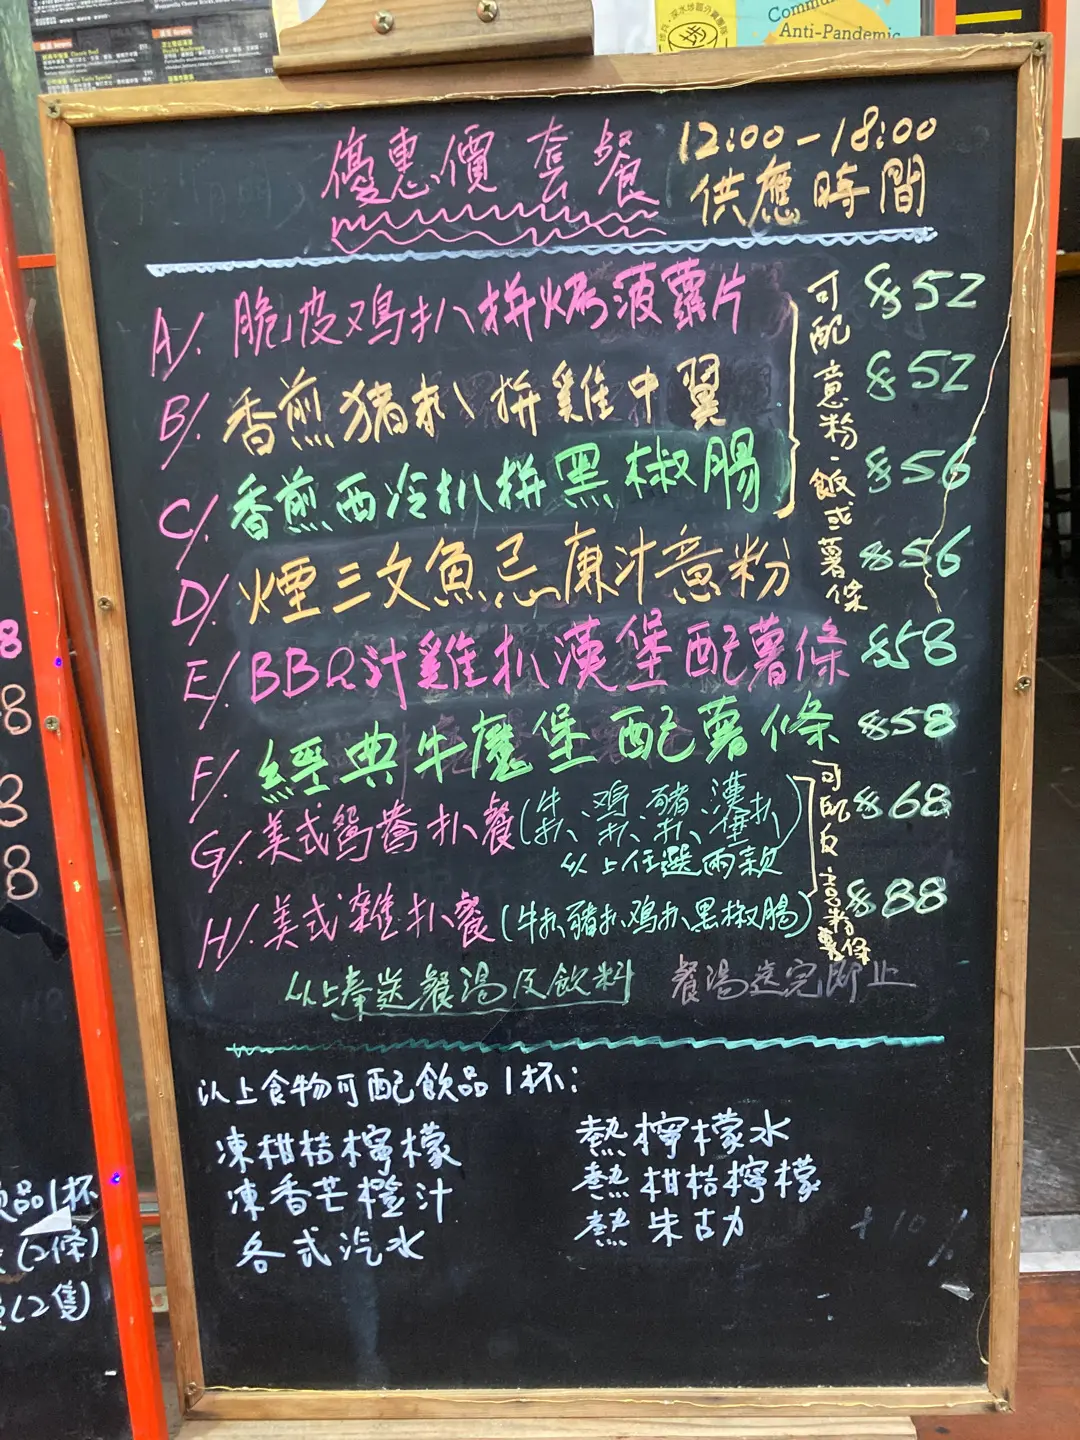 Commu
Anti-Pandemic
優惠價套餐
12:00-18:00
供應時間
A/. 脆皮鸡扒拼烤菠蘿片 $52
B/. 香煎豬扒拼雞中翼 $52
C/. 香煎西冷扒拼黑椒腸 $56
可配意粉、飯或薯條
D/. 煙三文魚忌廉汁意粉 $56
E/. BBQ汁雞扒漢堡配薯條 $58
F/. 經典牛魔堡配薯條 $58
G/. 美式鴛鴦扒餐(牛扒、鸡扒、豬扒、漢堡扒) $68
以上任選兩款
H/. 美式雜扒餐(牛扒豬扒鸡扒黑椒腸) $88
可配反意粉薯條
以上奉送餐湯及飲料 餐湯送完即止
以上食物可配飲品1杯:
凍柑桔檸檬
凍香芒橙汁
各式汽水
熱檸檬水
熱柑桔檸檬
熱朱古力
+10%
8
8
8
8
品1杯
(2條)
(2隻)